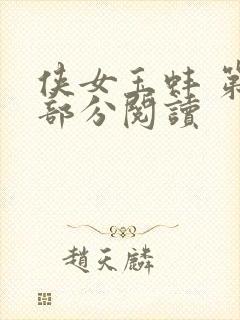 侠女玉蚌 第
部分閱讀
趙天麟